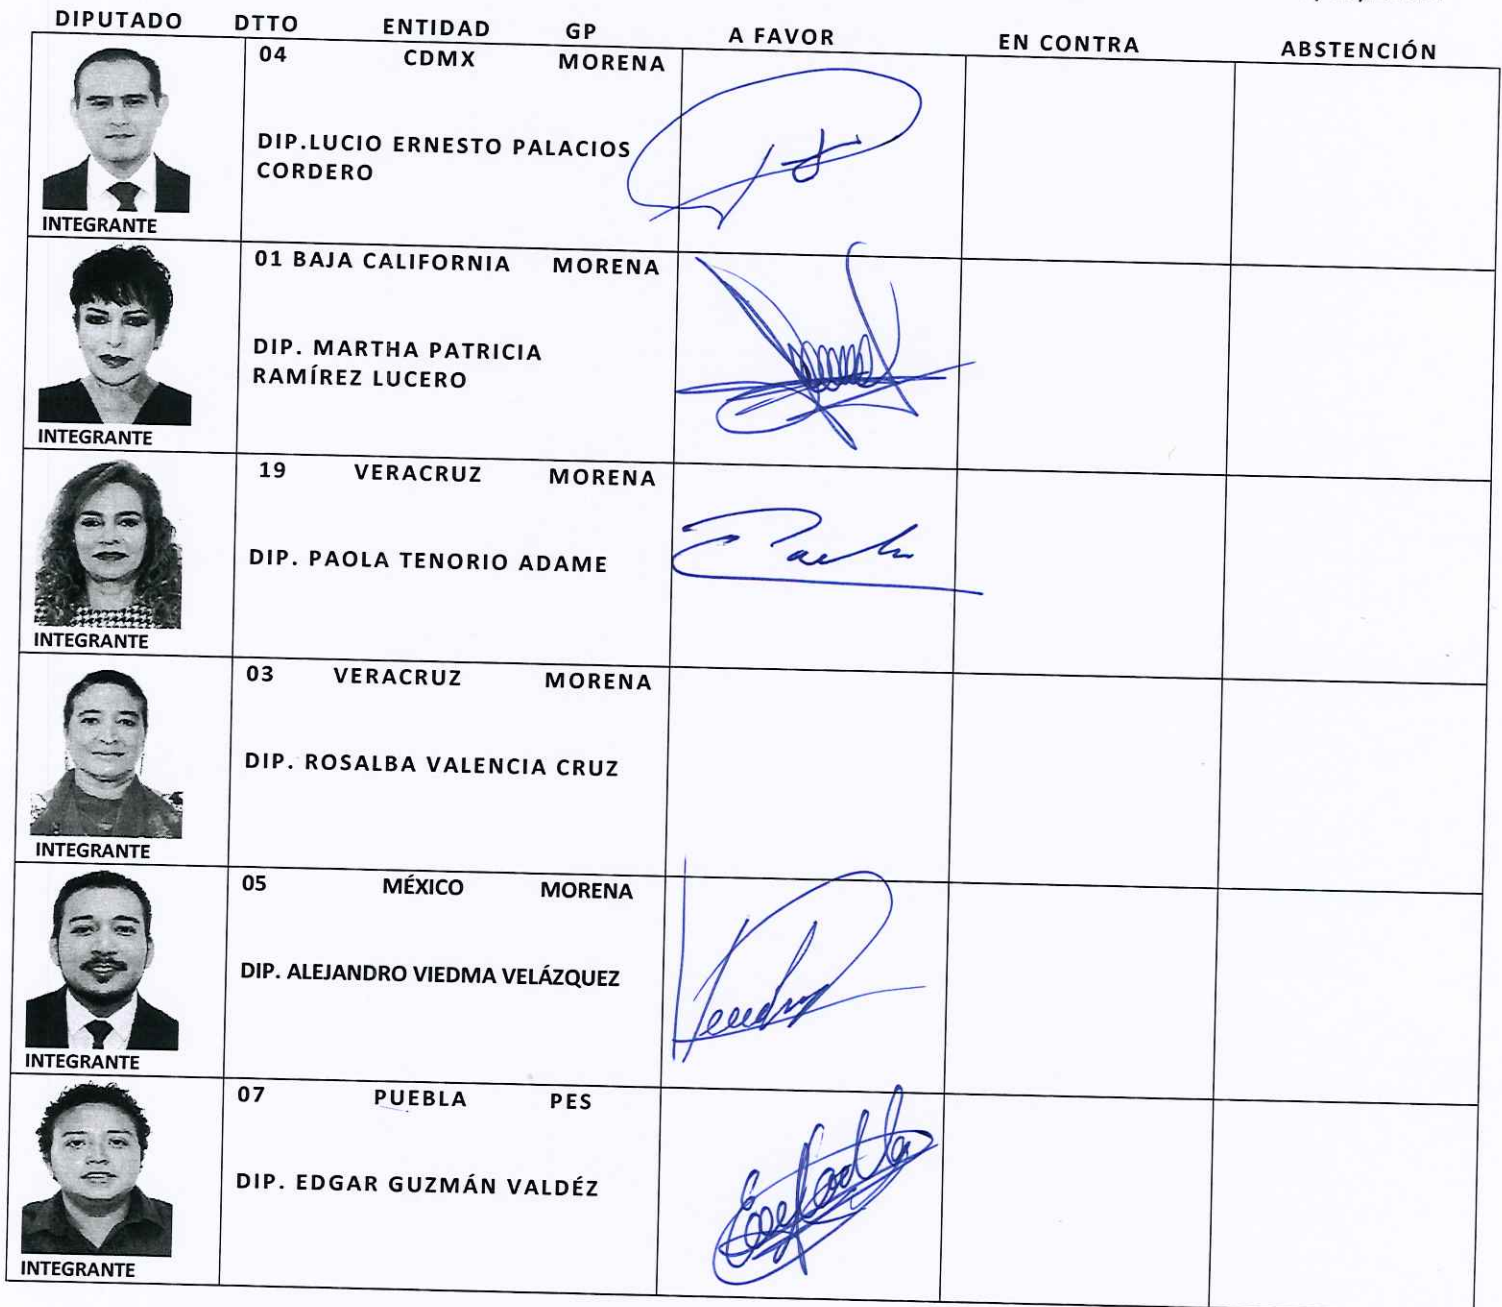 DIPUTADO DTTO ENTIDAD GP A FAVOR EN CONTRA ABSTENCIÓN
04 CDMX MORENA
DIP.LUCIO ERNESTO PALACIOS
CORDERO
INTEGRANTE
01 BAJA CALIFORNIA MORENA
DIP. MARTHA PATRICIA
RAMÍREZ LUCERO
INTEGRANTE
19 VERACRUZ MORENA
DIP. PAOLA TENORIO ADAME
INTEGRANTE
03 VERACRUZ MORENA
DIP. ROSALBA VALENCIA CRUZ
INTEGRANTE
05 MÉXICO MORENA
DIP. ALEJANDRO VIEDMA VELÁZQUEZ
INTEGRANTE
07 PUEBLA PES
DIP. EDGAR GUZMÁN VALDÉZ
INTEGRANTE